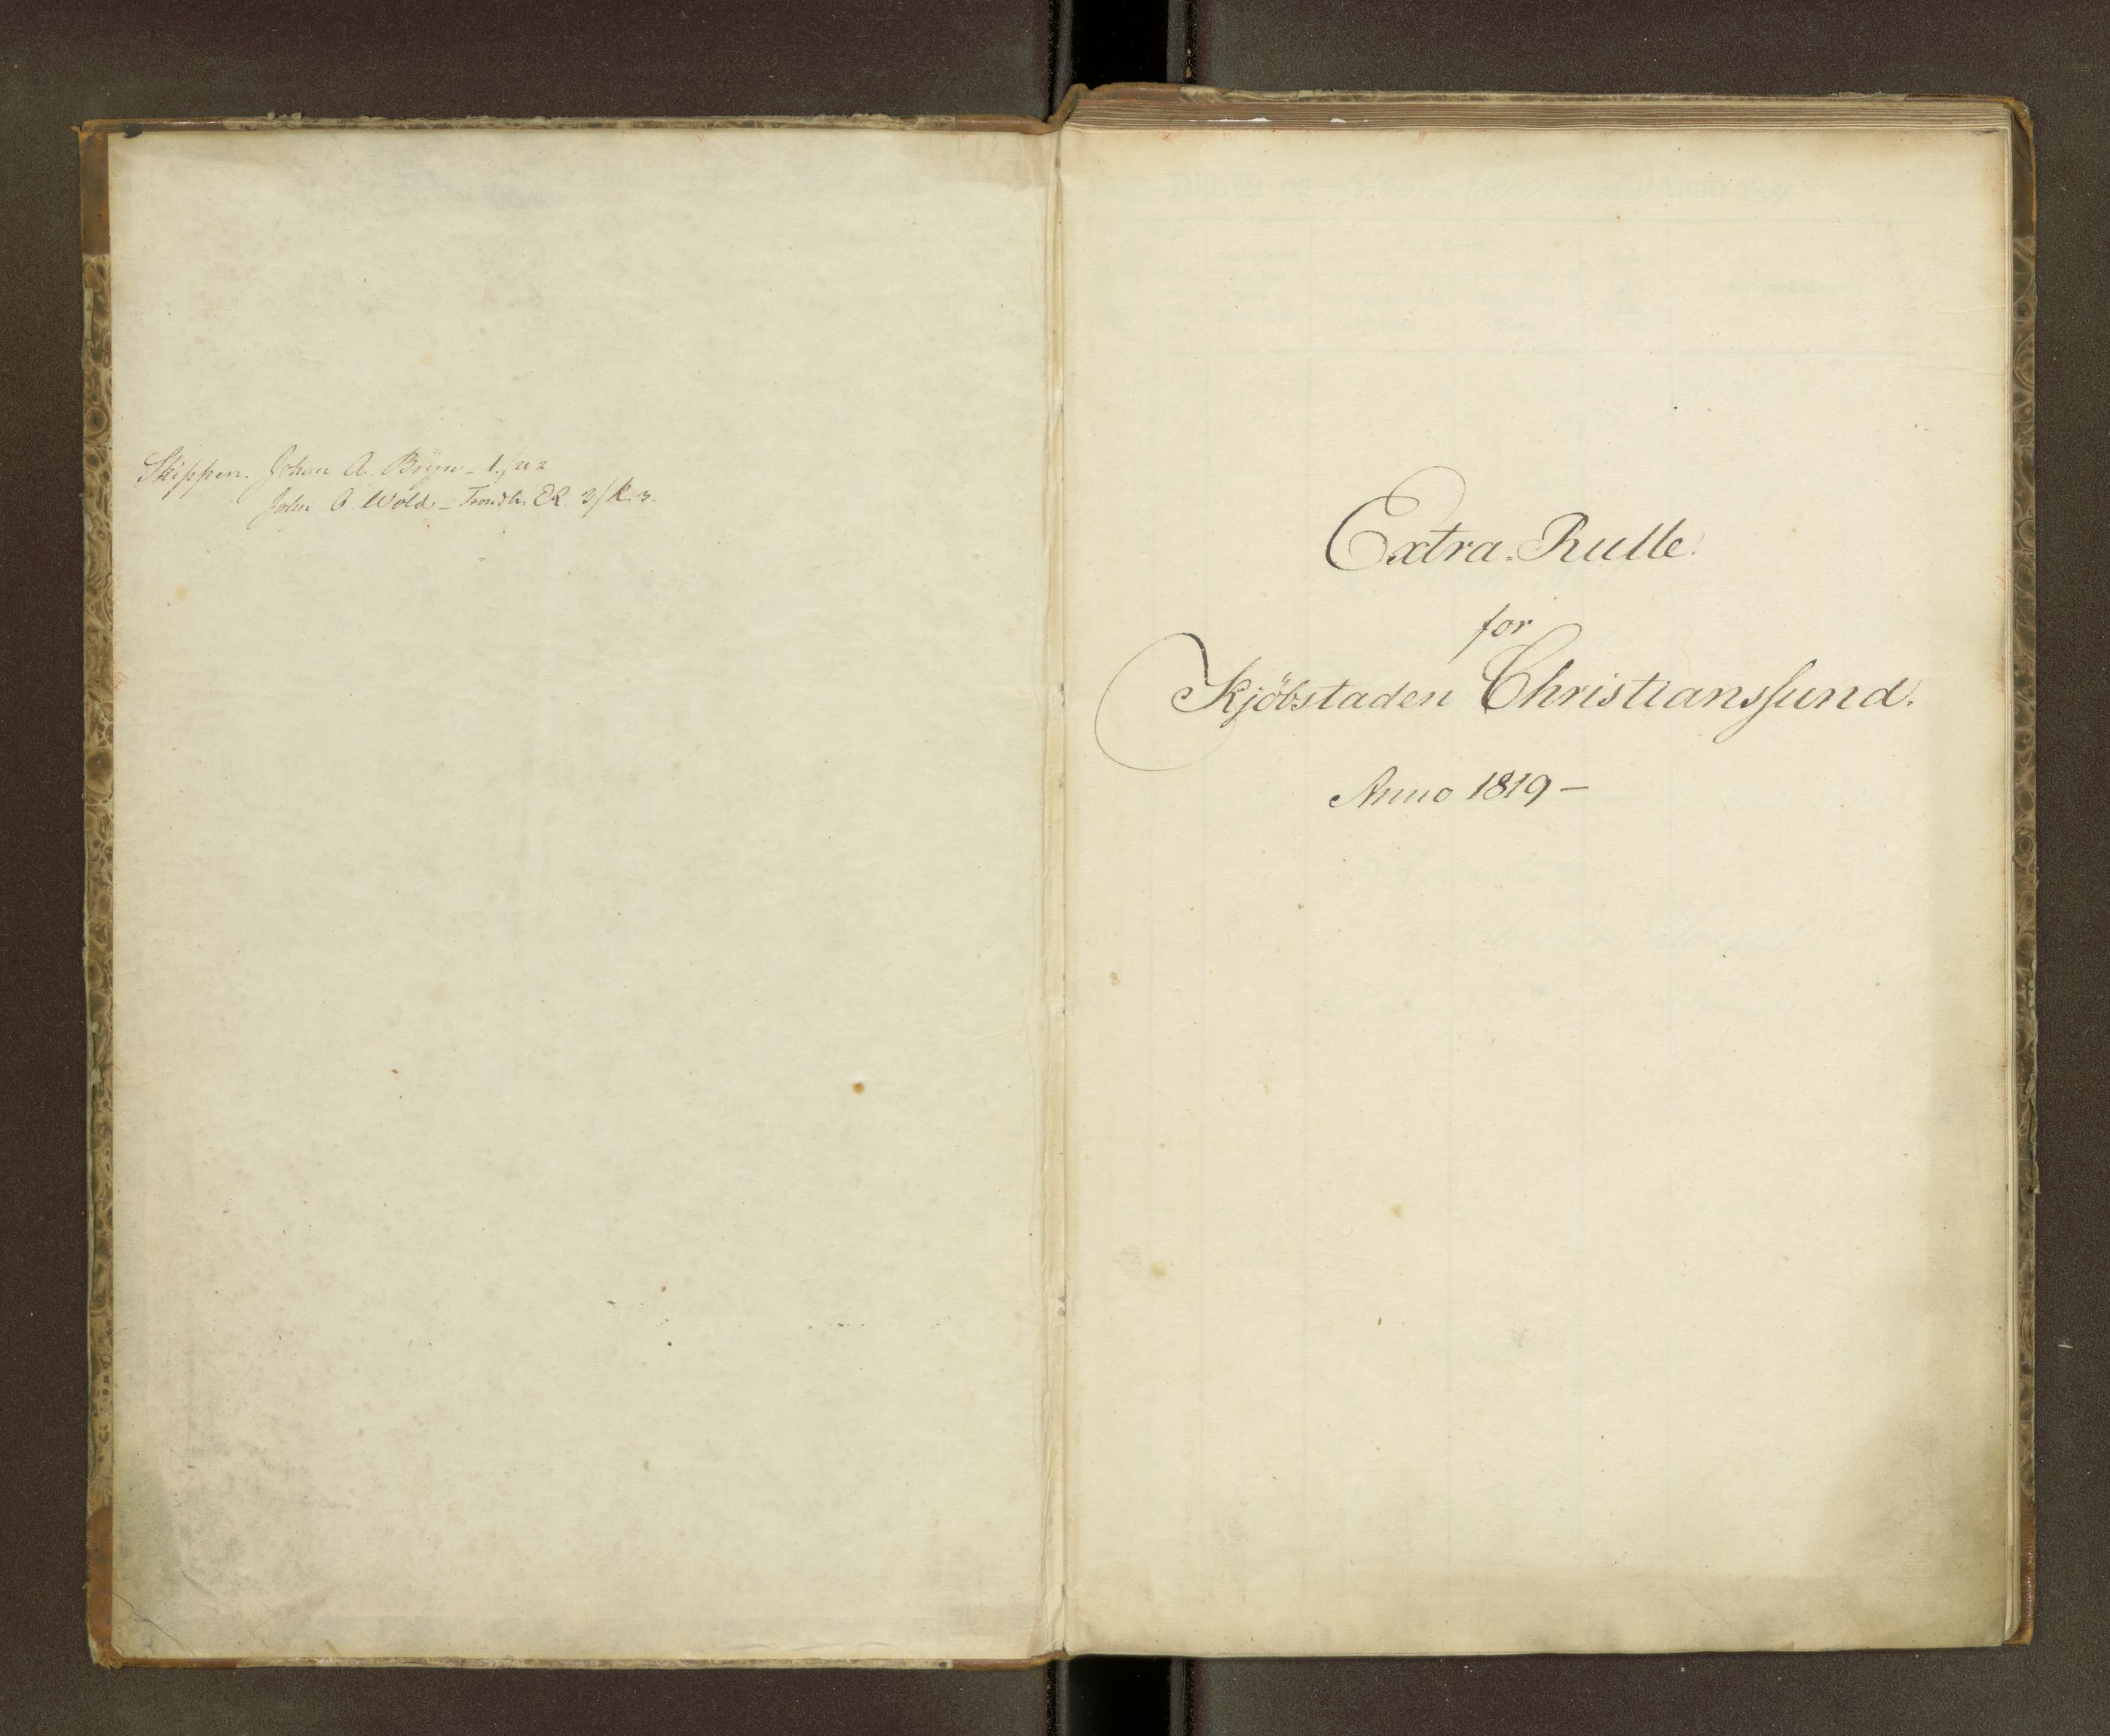 Skipper. Johan A. Bryn - 1.
John A. Wold - Trondh. ER. 3/k. 3.
Extra. Rulle.
for
Kjöbstaden Christianssund.
Anno 1819 -